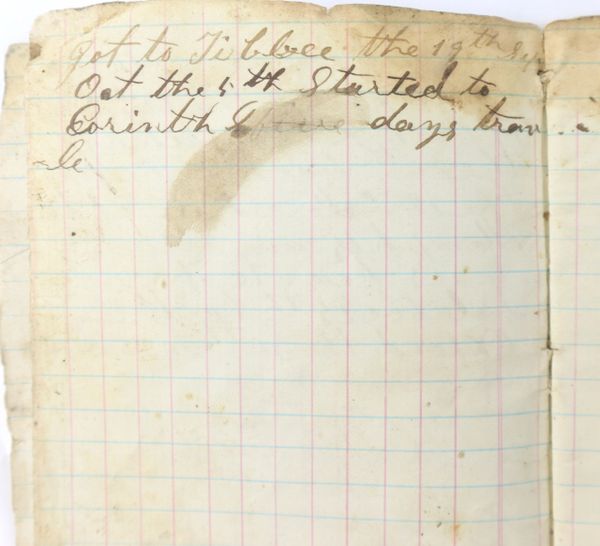 got to Tibbee the 19th Sep
Oct the 5th Started to
Corinth days trav
le